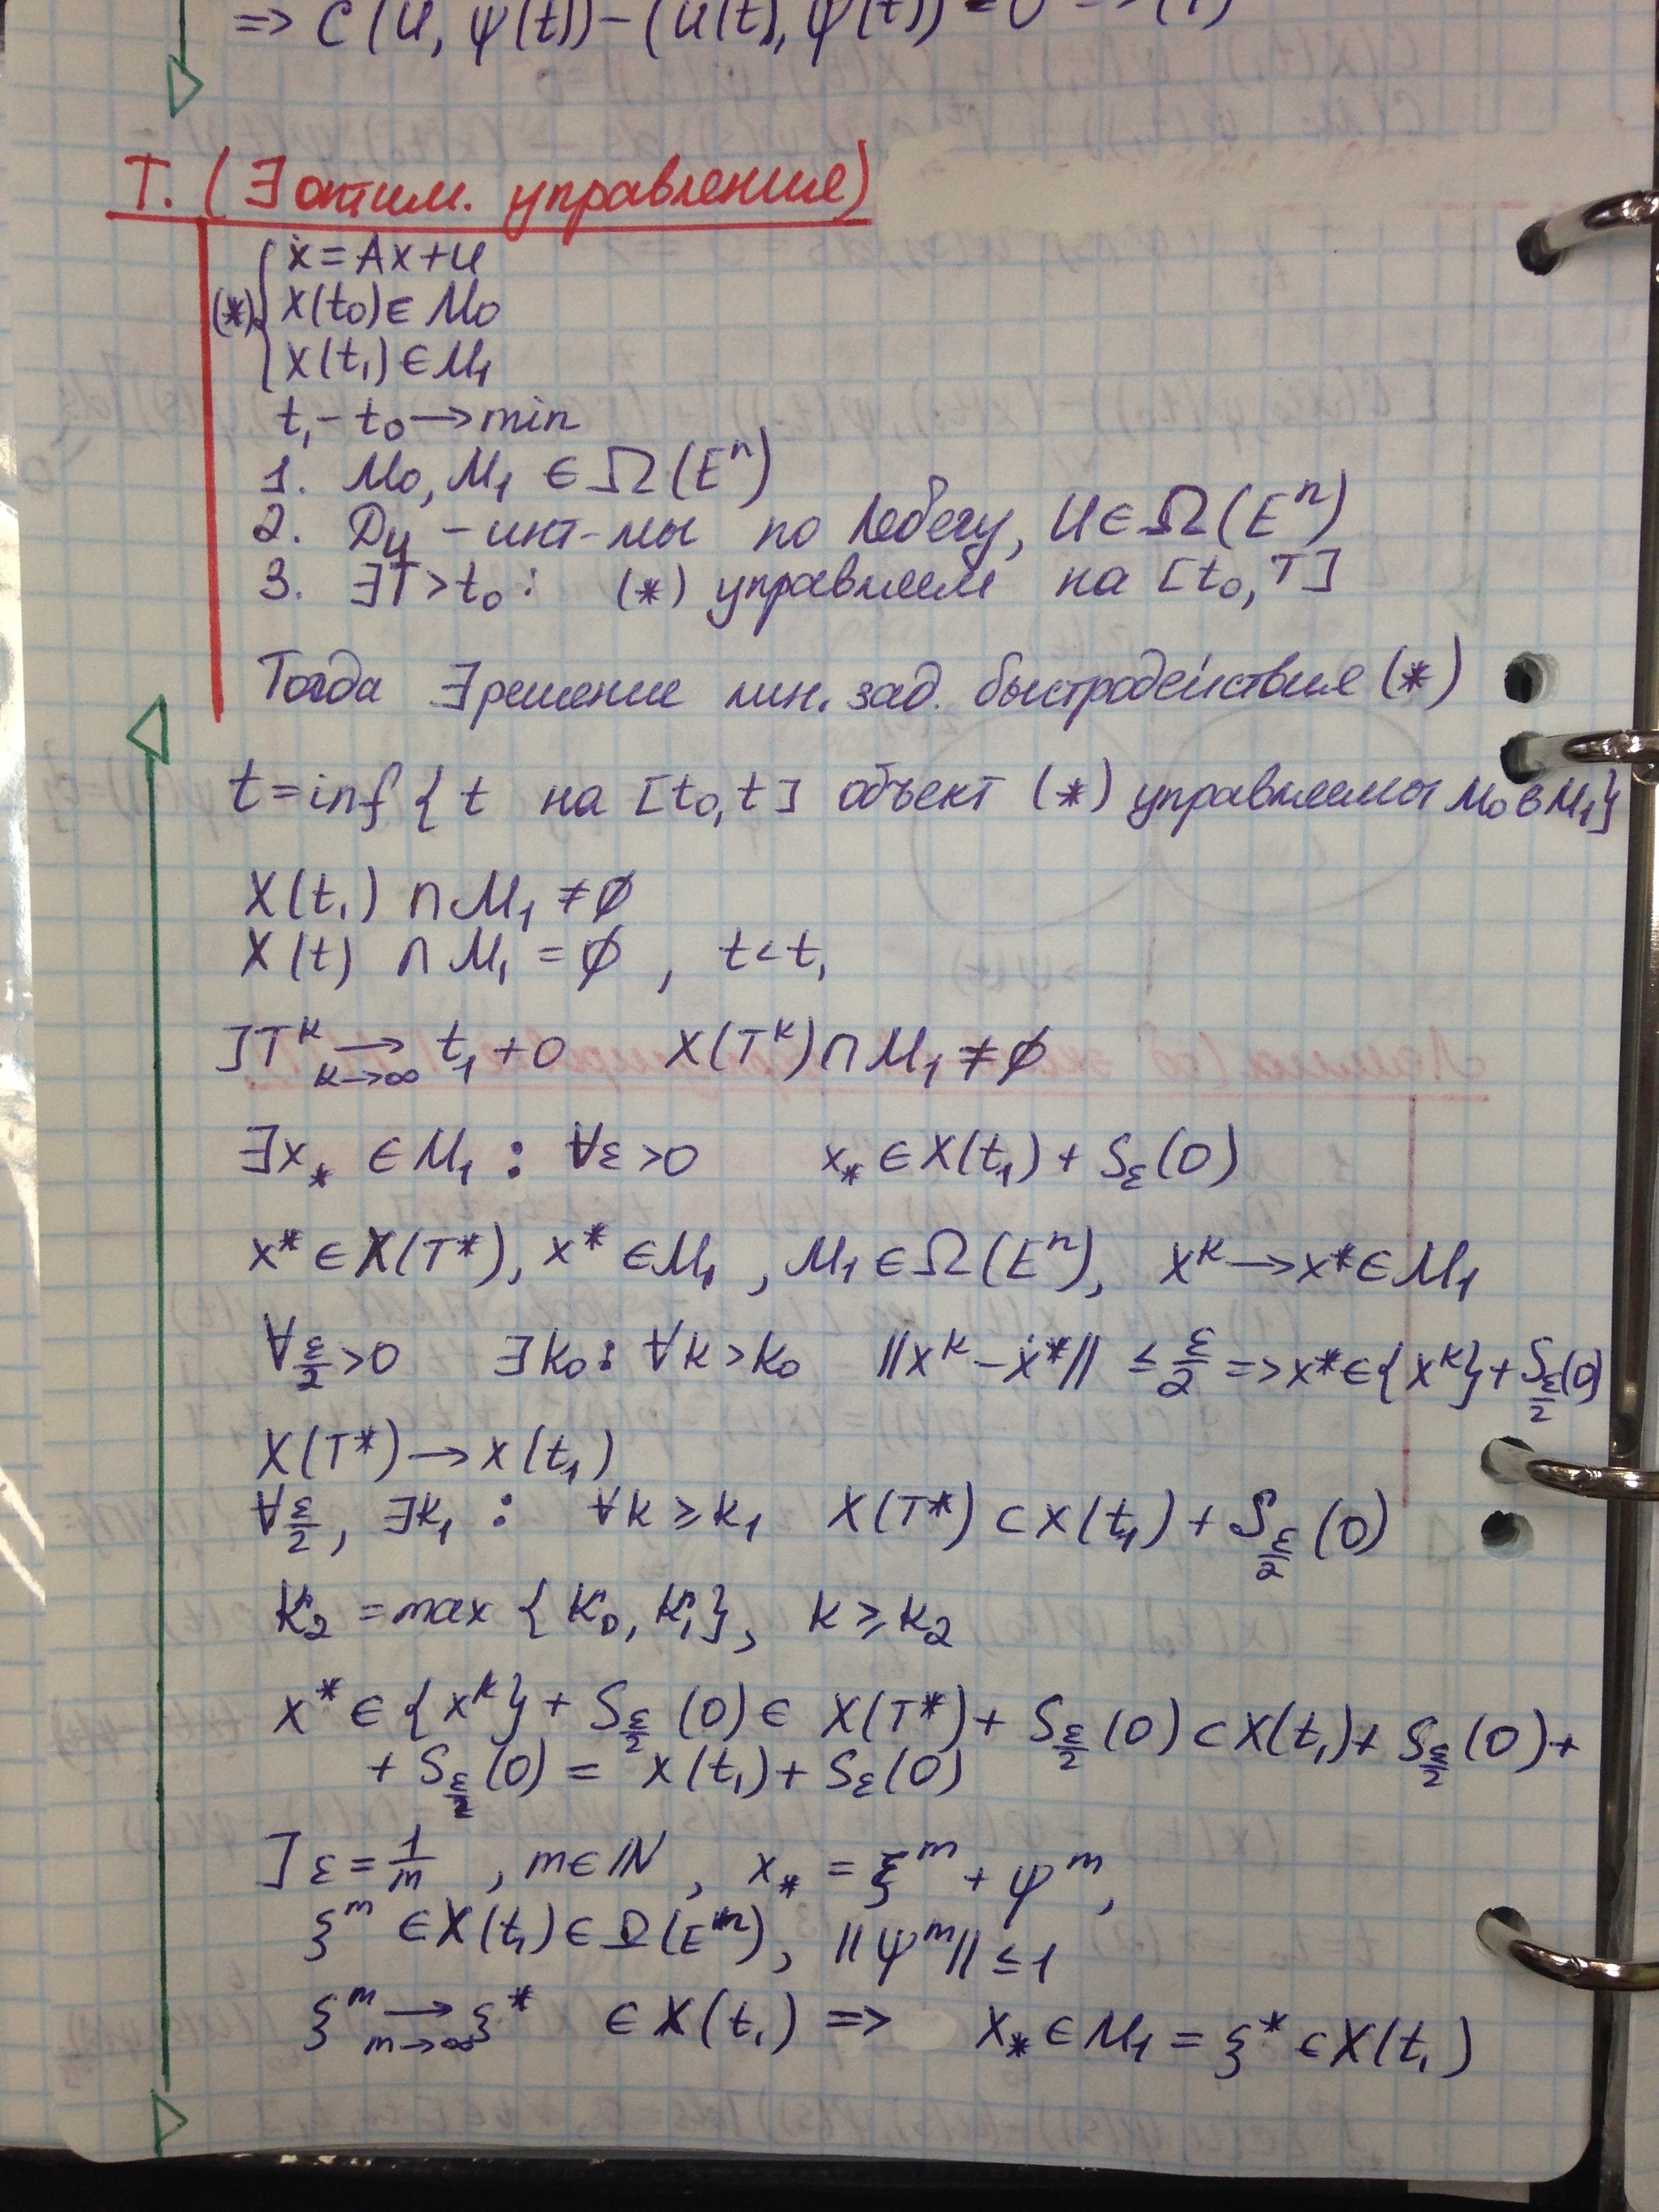 => C(U, ψ(t)) - (u(t), ψ(t)) = 0
T. (∃ оптим. управление)
ẋ = Ax + u
(*) x(t₀) ∈ M₀
x(t₁) ∈ M₁
t₁ - t₀ → min
1. M₀, M₁ ∈ Ω(Eⁿ)
2. Dᵤ - инт-мы по Лебегу, U ∈ Ω(Eⁿ)
3. ∃T > t₀ : (*) управляем на [t₀, T]
Тогда ∃ решение лин. зад. быстродействия (*)
t = inf { t на [t₀, t] объект (*) управляемы M₀ в M₁}
X(t₁) ∩ M₁ ≠ ∅
X(t) ∩ M₁ = ∅ , t < t₁
]Tᵏ → t₁ + 0 X(Tᵏ) ∩ M₁ ≠ ∅
k→∞
∃x_* ∈ M₁ : ∀ε > 0 x_* ∈ X(t₁) + S_ε(0)
x* ∈ X(T*), x* ∈ M₁ , M₁ ∈ Ω(Eⁿ), xᵏ → x* ∈ M₁
∀ε/2 > 0 ∃k₀ : ∀k > k₀ ||xᵏ - x*|| ≤ ε/2 => x* ∈ {xᵏ} + S_{ε/2}(0)
X(T*) → x(t₁)
∀ε/2, ∃k₁ : ∀k ≥ k₁ X(T*) ⊂ x(t₁) + S_{ε/2}(0)
k₂ = max {k₀, k₁}, k ≥ k₂
x* ∈ {xᵏ} + S_{ε/2}(0) ∈ X(T*) + S_{ε/2}(0) ⊂ X(t₁) + S_{ε/2}(0) +
+ S_{ε/2}(0) = x(t₁) + S_ε(0)
] ε = 1/m , m ∈ ℕ , x_* = ξᵐ + ψᵐ,
ξᵐ ∈ X(t₁) ∈ Ω(Eⁿ), ||ψᵐ|| ≤ 1
ξᵐ → ξ* ∈ X(t₁) => x_* ∈ M₁ = ξ* ∈ X(t₁)
m→∞